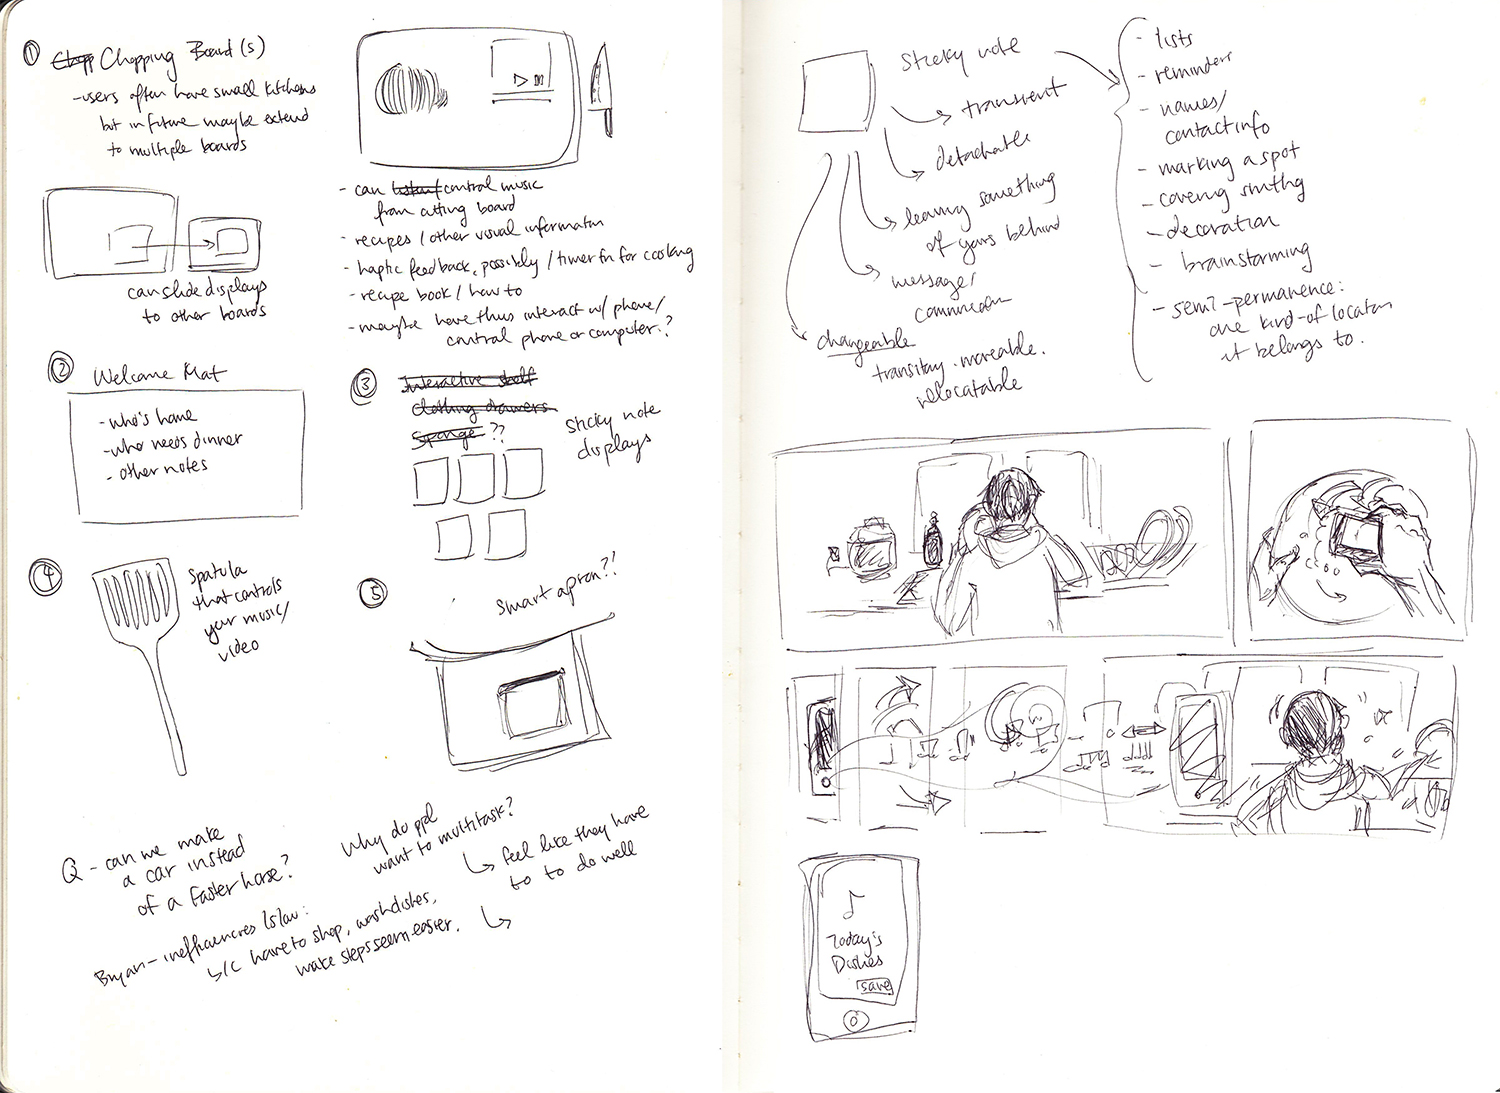 ① Chopping Board(s)
- users often have small kitchens
but in future maybe extend
to multiple boards
can slide displays
to other boards
- can control music
from cutting board
- recipes / other visual information
- haptic feedback, possibly / timer fn for cooking
- recipe book / how to
- maybe have thus interact w/ phone/
control phone or computer?
② Welcome Mat
- who's home
- who needs dinner
- other notes
③ Interactive shelf
clothing drawers
sponge ??
sticky note
displays
④ spatula
that controls
your music/
video
⑤ smart apron?!
Q - can we make
a car instead
of a faster horse?
Bryan - inefficiencies
b/c have to shop, wash dishes,
make steps seem easier.
Why do ppl
want to multitask?
feel like they have
to to do well
sticky note
transient
detachable
leaving something
of yours behind
message/
changeable
transitory. moveable.
relocatable
- lists
- reminders
- names/
contact info
- marking a spot
- covering smthg
- decoration
- brainstorming
- semi-permanence:
one kind-of location
it belongs to.
Today's
Dishes
save